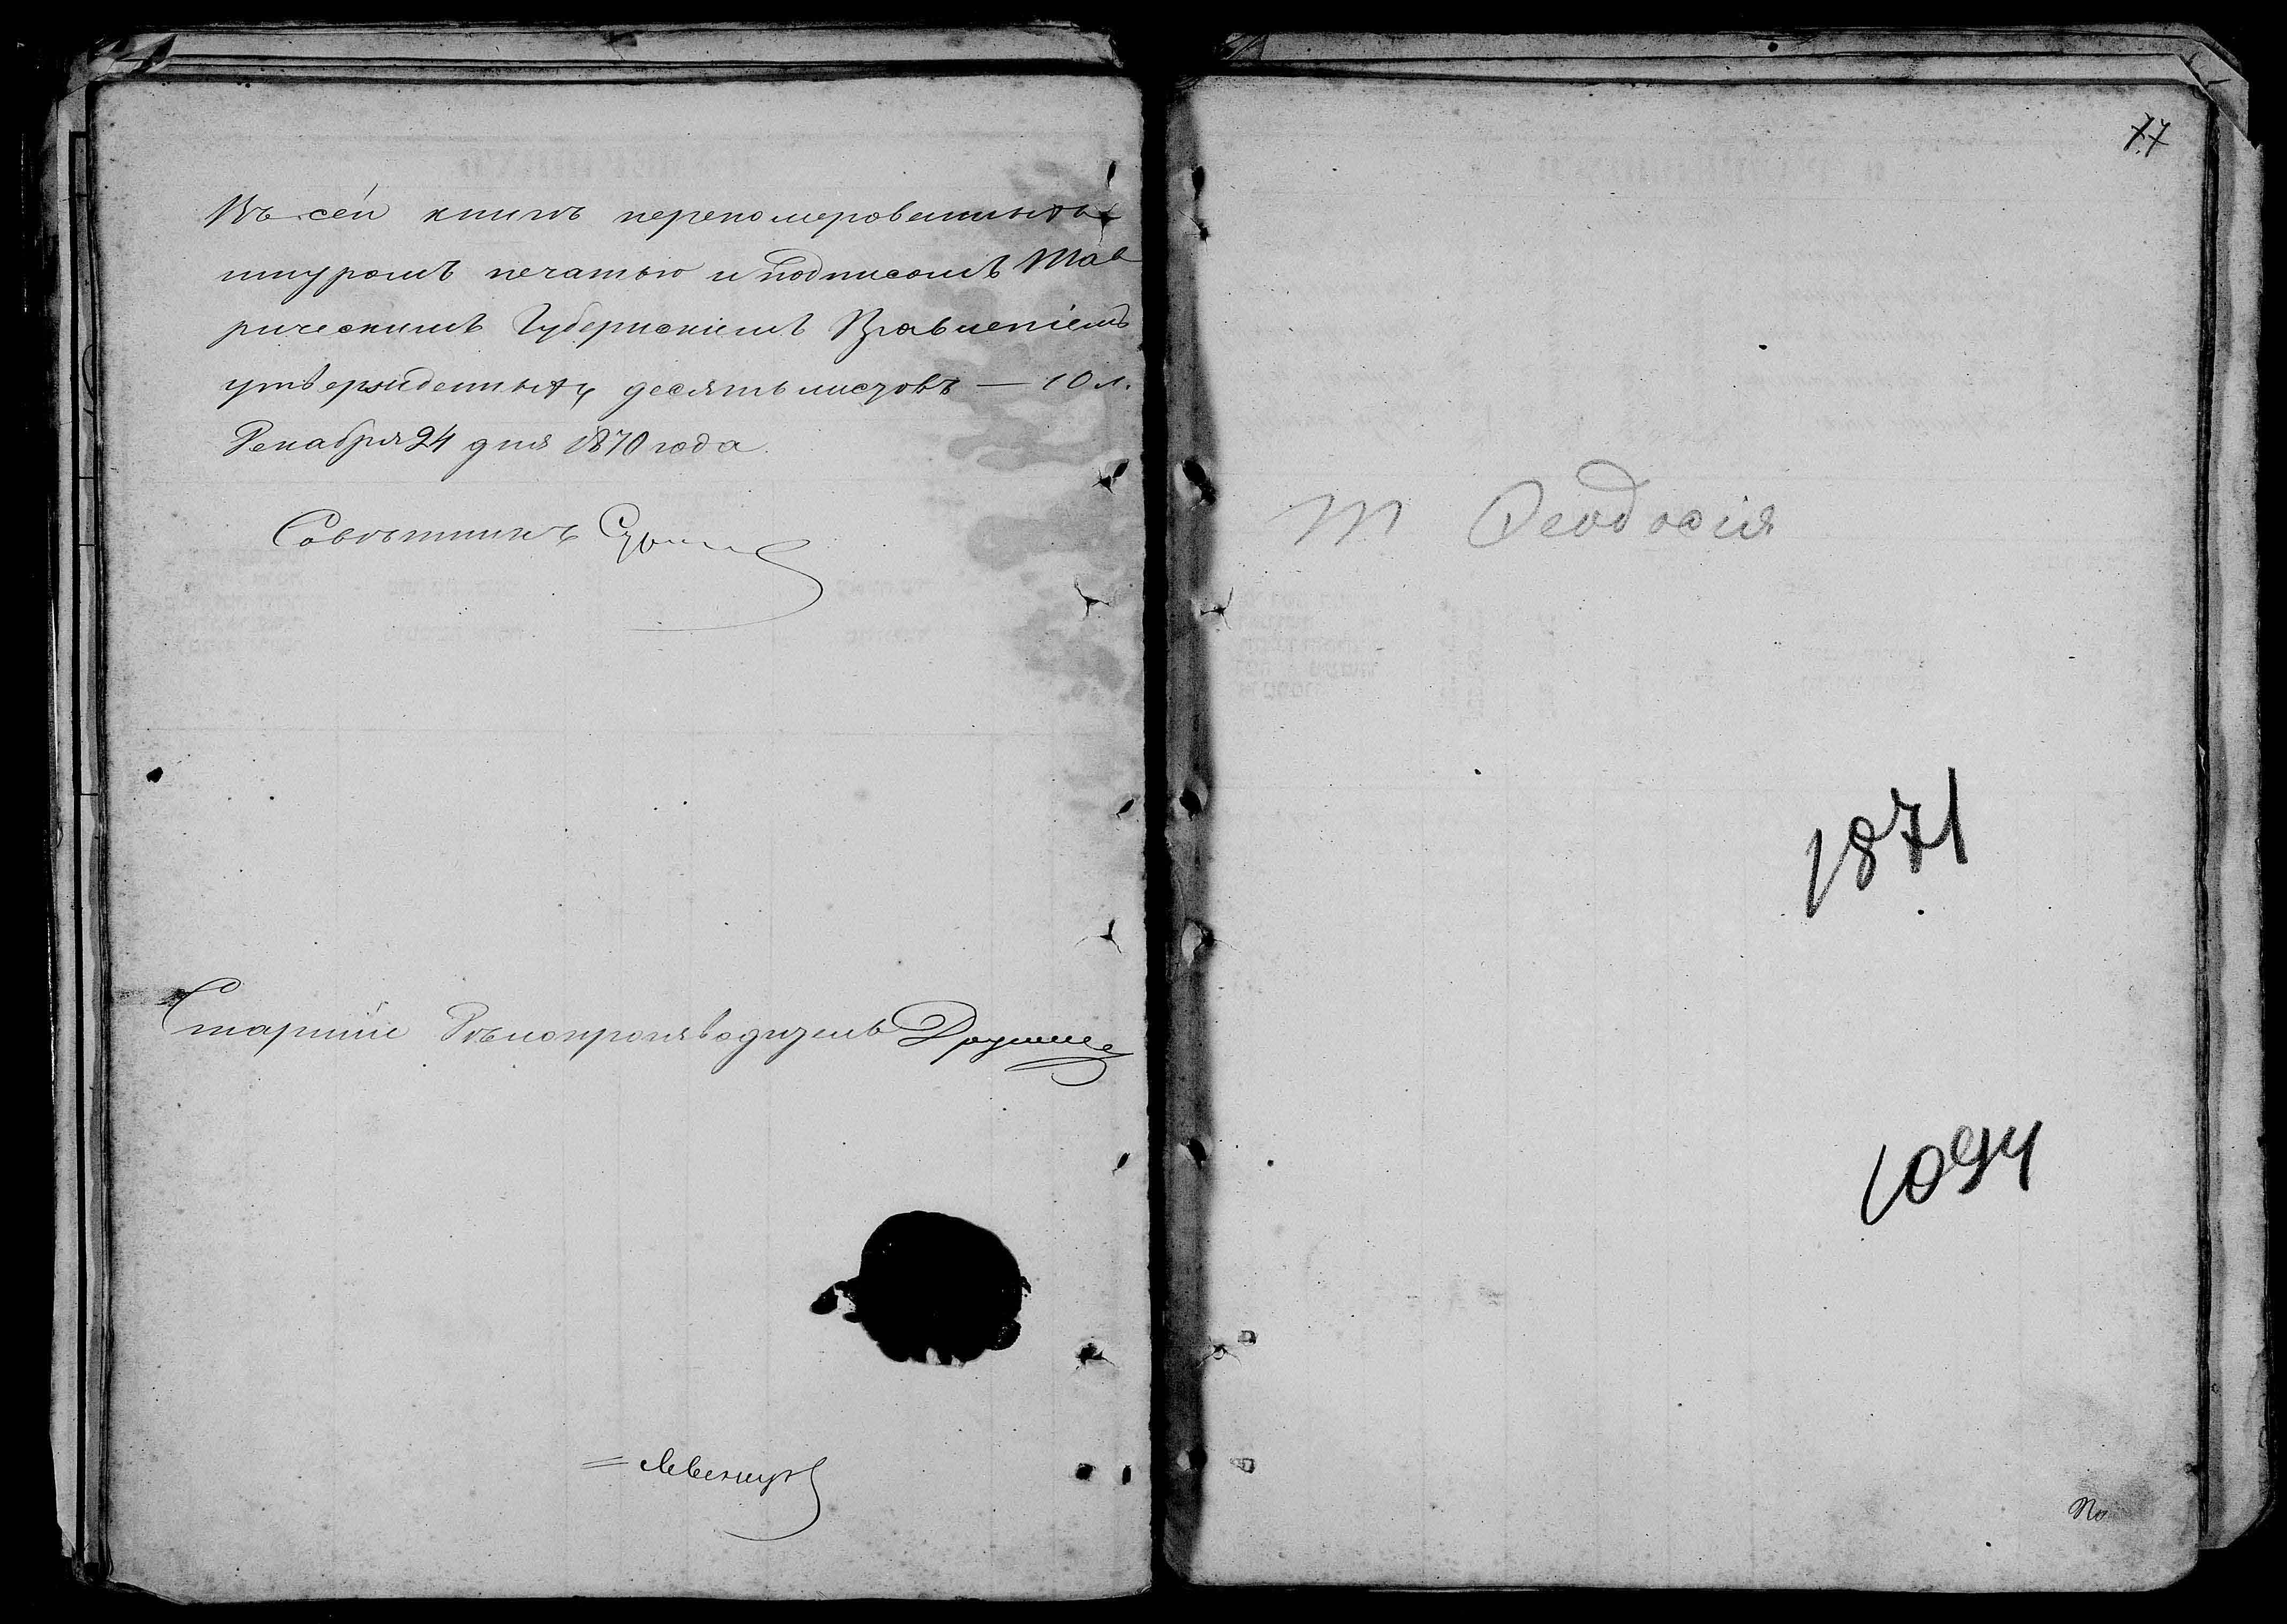 Въ сей книгѣ переномерованныхъ
шнуромъ печатью и подписомъ Тав
рическимъ Губернскимъ Правленіемъ
утвержденныхъ десять листовъ — 10 л.
Декабря 24 дня 1870 года.
Совѣтникъ
Старшій Дѣлопроизводитель
77
Ѳеодосія
1871
1094
По